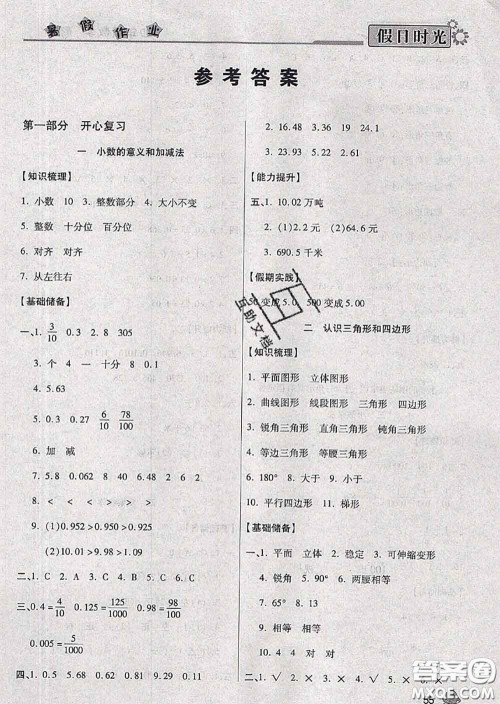 暑假作业
假日时光
参考答案
第一部分 开心复习
一 小数的意义和加减法
【知识梳理】
1. 小数 10 3. 整数部分 4. 大小不变
5. 整数 十分位 百分位
6. 对齐 对齐
7. 从左往右
【基础储备】
一、1. 3/10 0.3 2. 8 305
3. 个 4 一 十分 8 0.1
4. 5.63
5. 0.8 0.08 6/10 78/100
6. 加 减
7. 5.9 0.062 8 40 1.8 6 2 6
8. > < > < = <
9. (1)0.952 > 0.950 > 0.925
(2)10.01 > 9.98 > 9.1 > 1.09
二、1. C 2. A 3. C 4. C 5. C
三、0.4 = 4/10 0.125 = 125/1000 0.98 = 98/100
0.005 = 5/1000
四、1. 0.5 5.68 0.81 0.2 0.62
2. 16.48 3.36 19 24.1
3. 5.53 22.9 2.61
【能力提升】
五、1. 10.02万吨
2. (1)2.2元 (2)64.6元
3. 690.5千米
【假期实践】
50变成5.00, 500变成5.00
二 认识三角形和四边形
【知识梳理】
1. 平面图形 立体图形
2. 曲线图形 线段图形 三角形 四边形
3. 锐角三角形 直角三角形 钝角三角形
4. 等边三角形 等腰三角形
6. 180° 8. 大于 9. 小于
10. 平行四边形 11. 梯形
【基础储备】
一、1. 平面 立体 2. 稳定 3. 可伸缩变形
4. 锐角 5. 90° 6. 两腰相等
7. 65° 8. 13
9. 相等 相等
10. 4 4 对 对
二、1. √ 2. × 3. × 4. √ 5. × 6. ×
55
互助文档
答案圈
MXQE.COM